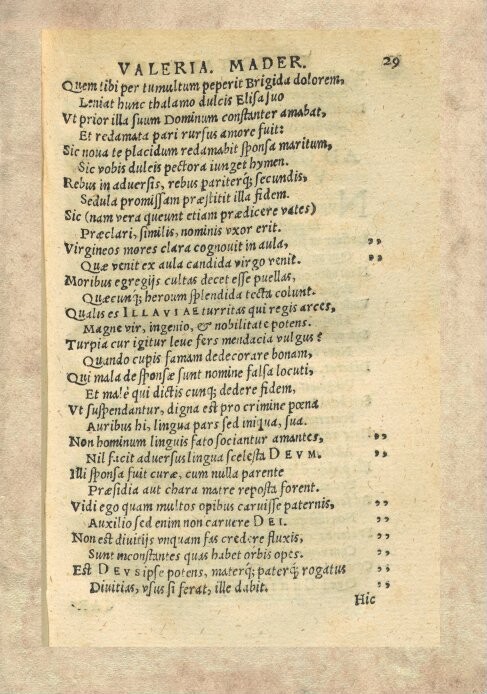 VALERIA. MADER. 29
Quem tibi per tumultum peperit Brigida dolorem,
Leniat hunc thalamo dulcis Elisa suo
Vt prior illa suum Dominum constanter amabat,
Et redamata pari rursus amore fuit:
Sic noua te placidum redamabit sponsa maritum,
Sic vobis dulcis pectora iunget hymen.
Rebus in aduersis, rebus pariterq́; secundis,
Sedula promissam præstitit illa fidem.
Sic (nam vera queunt etiam prædicere vates)
Præclari, similis, nominis vxor erit.
Virgineos mores clara cognouit in aula, ”
Quæ venit ex aula candida virgo venit. ”
Moribus egregijs cultas decet esse puellas,
Quæcunq́; heroum splendida tecta colunt.
Qualis es ILLAVIAE turritas qui regis arces,
Magne vir, ingenio, & nobilitate potens.
Turpia cur igitur leue fers mendacia vulgus?
Quando cupis famam dedecorare bonam,
Qui mala de sponsæ sunt nomine falsa locuti,
Et malè qui dictis cunq́; dedere fidem,
Vt suspendantur, digna est pro crimine pœna
Auribus hi, lingua pars sed iniqua, sua.
Non hominum linguis fato sociantur amantes, ”
Nil facit aduersus lingua scelesta DEVM. ”
Illi sponsa fuit curæ, cum nulla parente
Præsidia aut chara matre reposta forent.
Vidi ego quam multos opibus caruisse paternis, ”
Auxilio sed enim non caruere DEI. ”
Non est diuitijs vnquam fas credere fluxis, ”
Sunt inconstantes quas habet orbis opes. ”
Est DEVS ipse potens, materq́; paterq́; rogatus ”
Diuitias, vsus si ferat, ille dabit. ”
Hic